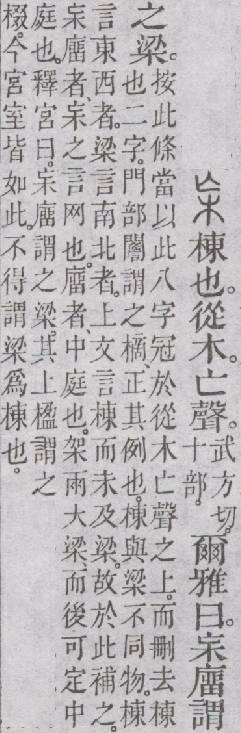 杗棟也。從木。亡聲。武方切。
十部。
爾雅曰。杗廇謂
之梁。按此條當以此八字冠於從木亡聲之上。而刪去棟
也二字。門部謂之樀。正其例也。棟與梁不同物。棟
言東西者。梁言南北者。上文言棟而未及梁。故於此補之。
杗廇者、杗之言网也。廇者、中庭也。架兩大梁、而後可定中
庭也。釋宮曰。杗廇謂之梁。其上楹謂之
棳。今宮室皆如此。不得謂梁爲棟也。